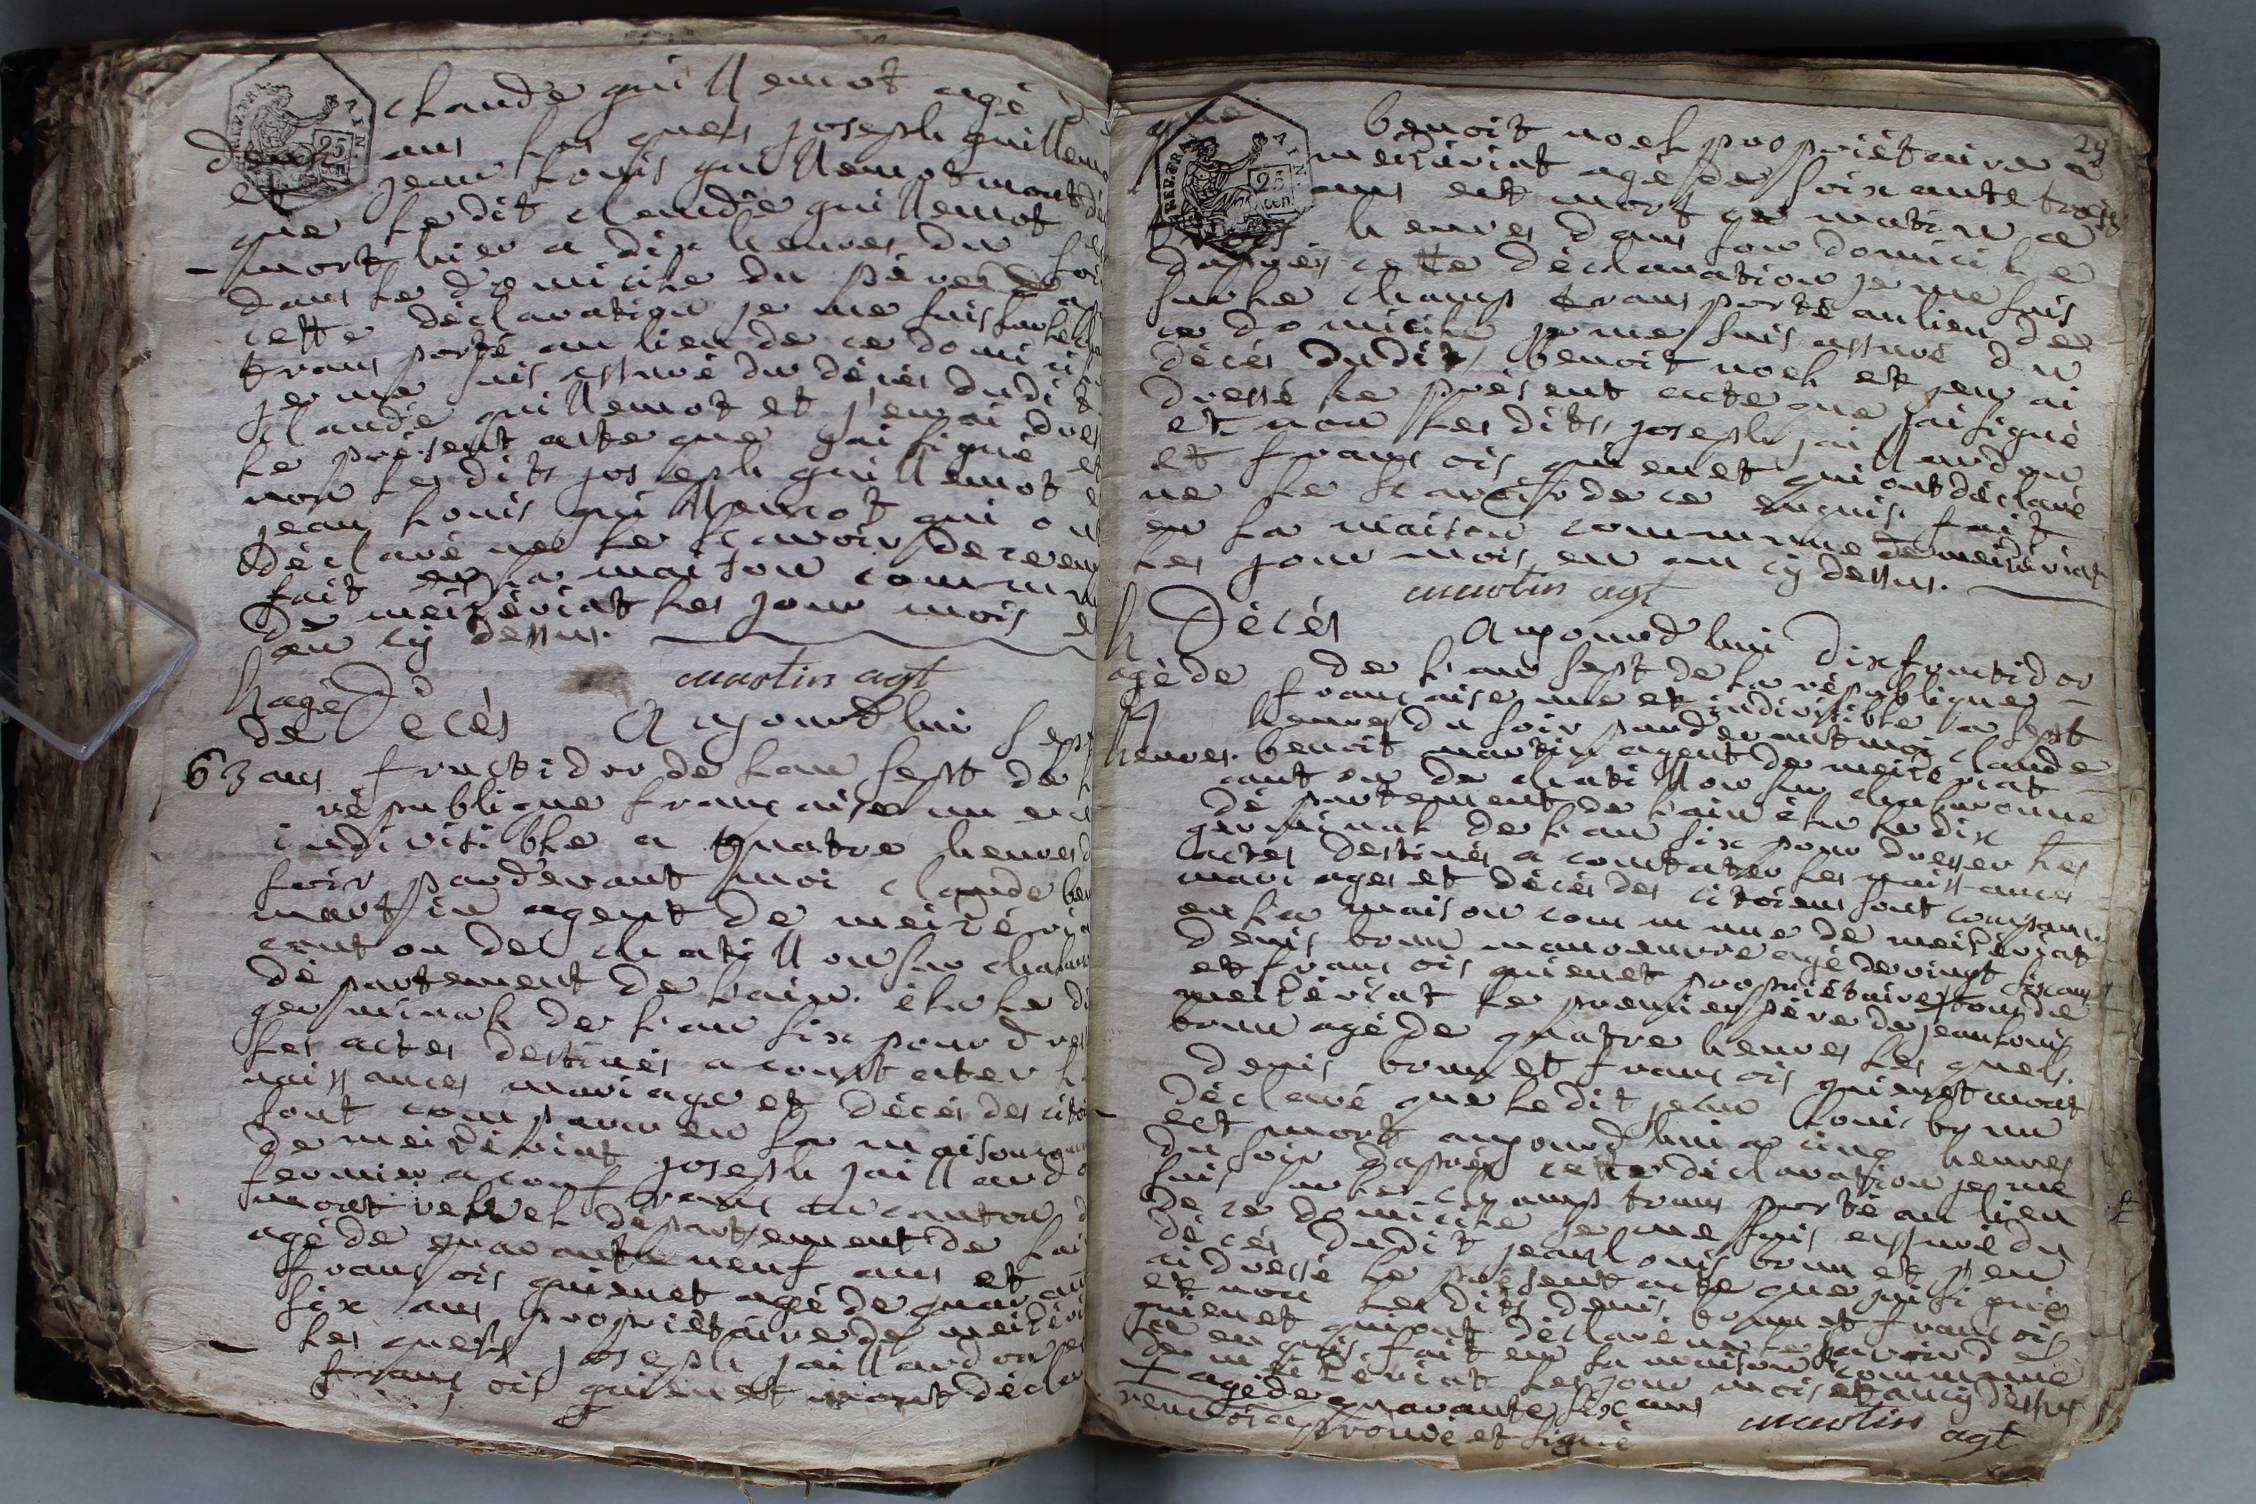 claude guillemot agé
deux ans les quels joseph guillem
et jean louis guillemot mont dé
que le dit claude guillemot
mort hier a dix heures du
dans le domicile du père
cette déclaration je me suis sur le
transporté au lieu de ce domici
je me suis assuré du décès dudit
claude guillemot et j'en ai dres
le présent acte que j'ai signé et
non les dits joseph guillemot e
jean louis guillemot qui on
déclaré ne le scavoir de ce en
fait en la maison commu
de meizériat les jour mois e
an cy dessus.
martin agt
h agé
de
63 ans
Décès Aujourd'hui sept
fructidor de l'an sept de l
république française une e
indivisible a quatre heures d
soir pardevant moi claude ben
martin agent de meizéria
canton de chatillon sur chalar
département de l'ain. élu le di
germinal de l'an six pour dres
les actes destinés a constater l
naissances mariage et décés des cito
sont comparu en la maison
de meizériat joseph jaillard
fermier a du canton d
mont revel département de l'ai
agé de quarante neuf ans et
françois guienet agé de quaran
six ans propriétaire de meizéri
les quels joseph jaillardon
françois guienet mont décla
29
que benoit noel propriétaire a
meizériat agé de soixante trois
ans est mort ce matin a
trois heures dans son domicile
d'après cette déclaration je me suis
sur le champ transporté au lieu de
ce domicile je me suis assuré du
décés dudit benoit noel et j'en ai
dressé le présent acte que j'ai signé
et non les dits joseph jaillardon
et françois guienet qui ont déclaré
ne le scavoir de ce enquis. fait
en la maison commune de meizériat
les jour mois en an cy dessus.
martin agt
h
agé de
4
heures.
Décés Aujourd'hui dix fructidor
de l'an sept de la république
française une et indivisible a sept
heures du soir pardevant moi claude
benoit martin agent de meizériat
canton de chatillon sur chalaronne
département de l'ain élu le dix
germinal de l'an six pour dresser les
actes destinés a constater les naissances
mariages et décés des citoiens sont comparu
en la maison commune de meizériat
denis brun manoeuvre agé de vingt six ans
et françois guienet propriétaire tous de
meizériat le premier père de jean louis
brun agé de quatre heures les quels.
denis brun et françois guienet mont
déclaré que le dit jean louis brun
est mort aujourd'hui a cinq heures
du soir d'après cette déclaration je me
suis sur le champ transporté au lieu
de ce domicile je me suis assuré du
décés dudit jean louis brun et j'en
ai dressé le présent acte que j'ai signé
et non les dits denis brun et françois
guienet qui ont déclaré ne le scavoir de
ce enquis fait en la maison commune
de meizériat les jour mois et an cy dessus
+ agé de quarante six ans
renvoi approuvé et signé
martin
agt